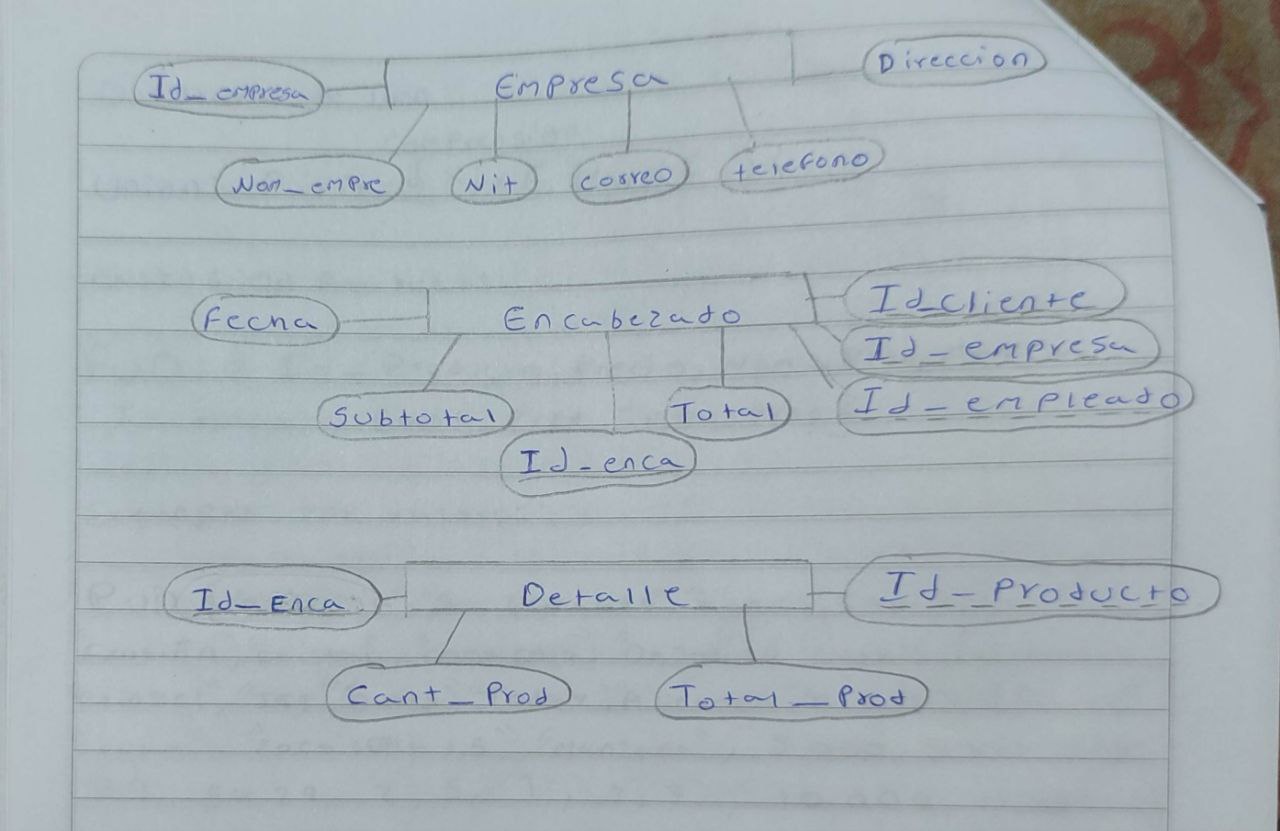 Id_empresa
Empresa
Direccion
Nom_empre
Nit
correo
telefono
Fecha
Encabezado
Id_cliente
Id_empresa
Id_empleado
Subtotal
Total
Id_enca
Id_Enca
Detalle
Id_Producto
Cant_Prod
Total_Prod